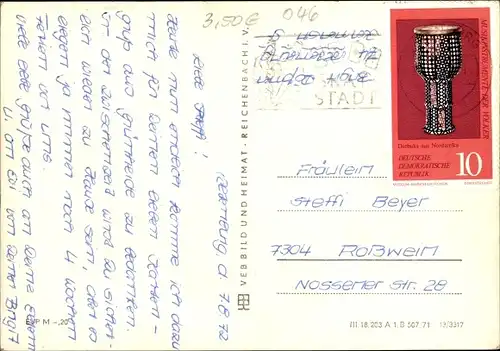 3,50 €
046
Dornburg d. 7.8.72
Liebe Steffi!
Heute nun endlich komme ich dazu
mich für Deinen lieben Karten-
gruß aus zu bedanken.
In der Zwischenzeit wirst Du sicher-
lich wieder zu Hause sein, aber es
liegen ja immer noch 4 Wochen
Ferien vor uns.
Viele liebe Grüße auch an Deine Eltern
u. an von Deiner Birgit
VEB BILD UND HEIMAT · REICHENBACH I. V.
STADT
MUSIKINSTRUMENTE DER VÖLKER
Darbuka aus Nordafrika
DEUTSCHE
DEMOKRATISCHE
REPUBLIK
10
Fräulein
Steffi Beyer
7304 Roßwein
Nossener Str. 28
EVP M -,20
III 18 203 A 1. B 507 71 13/3317